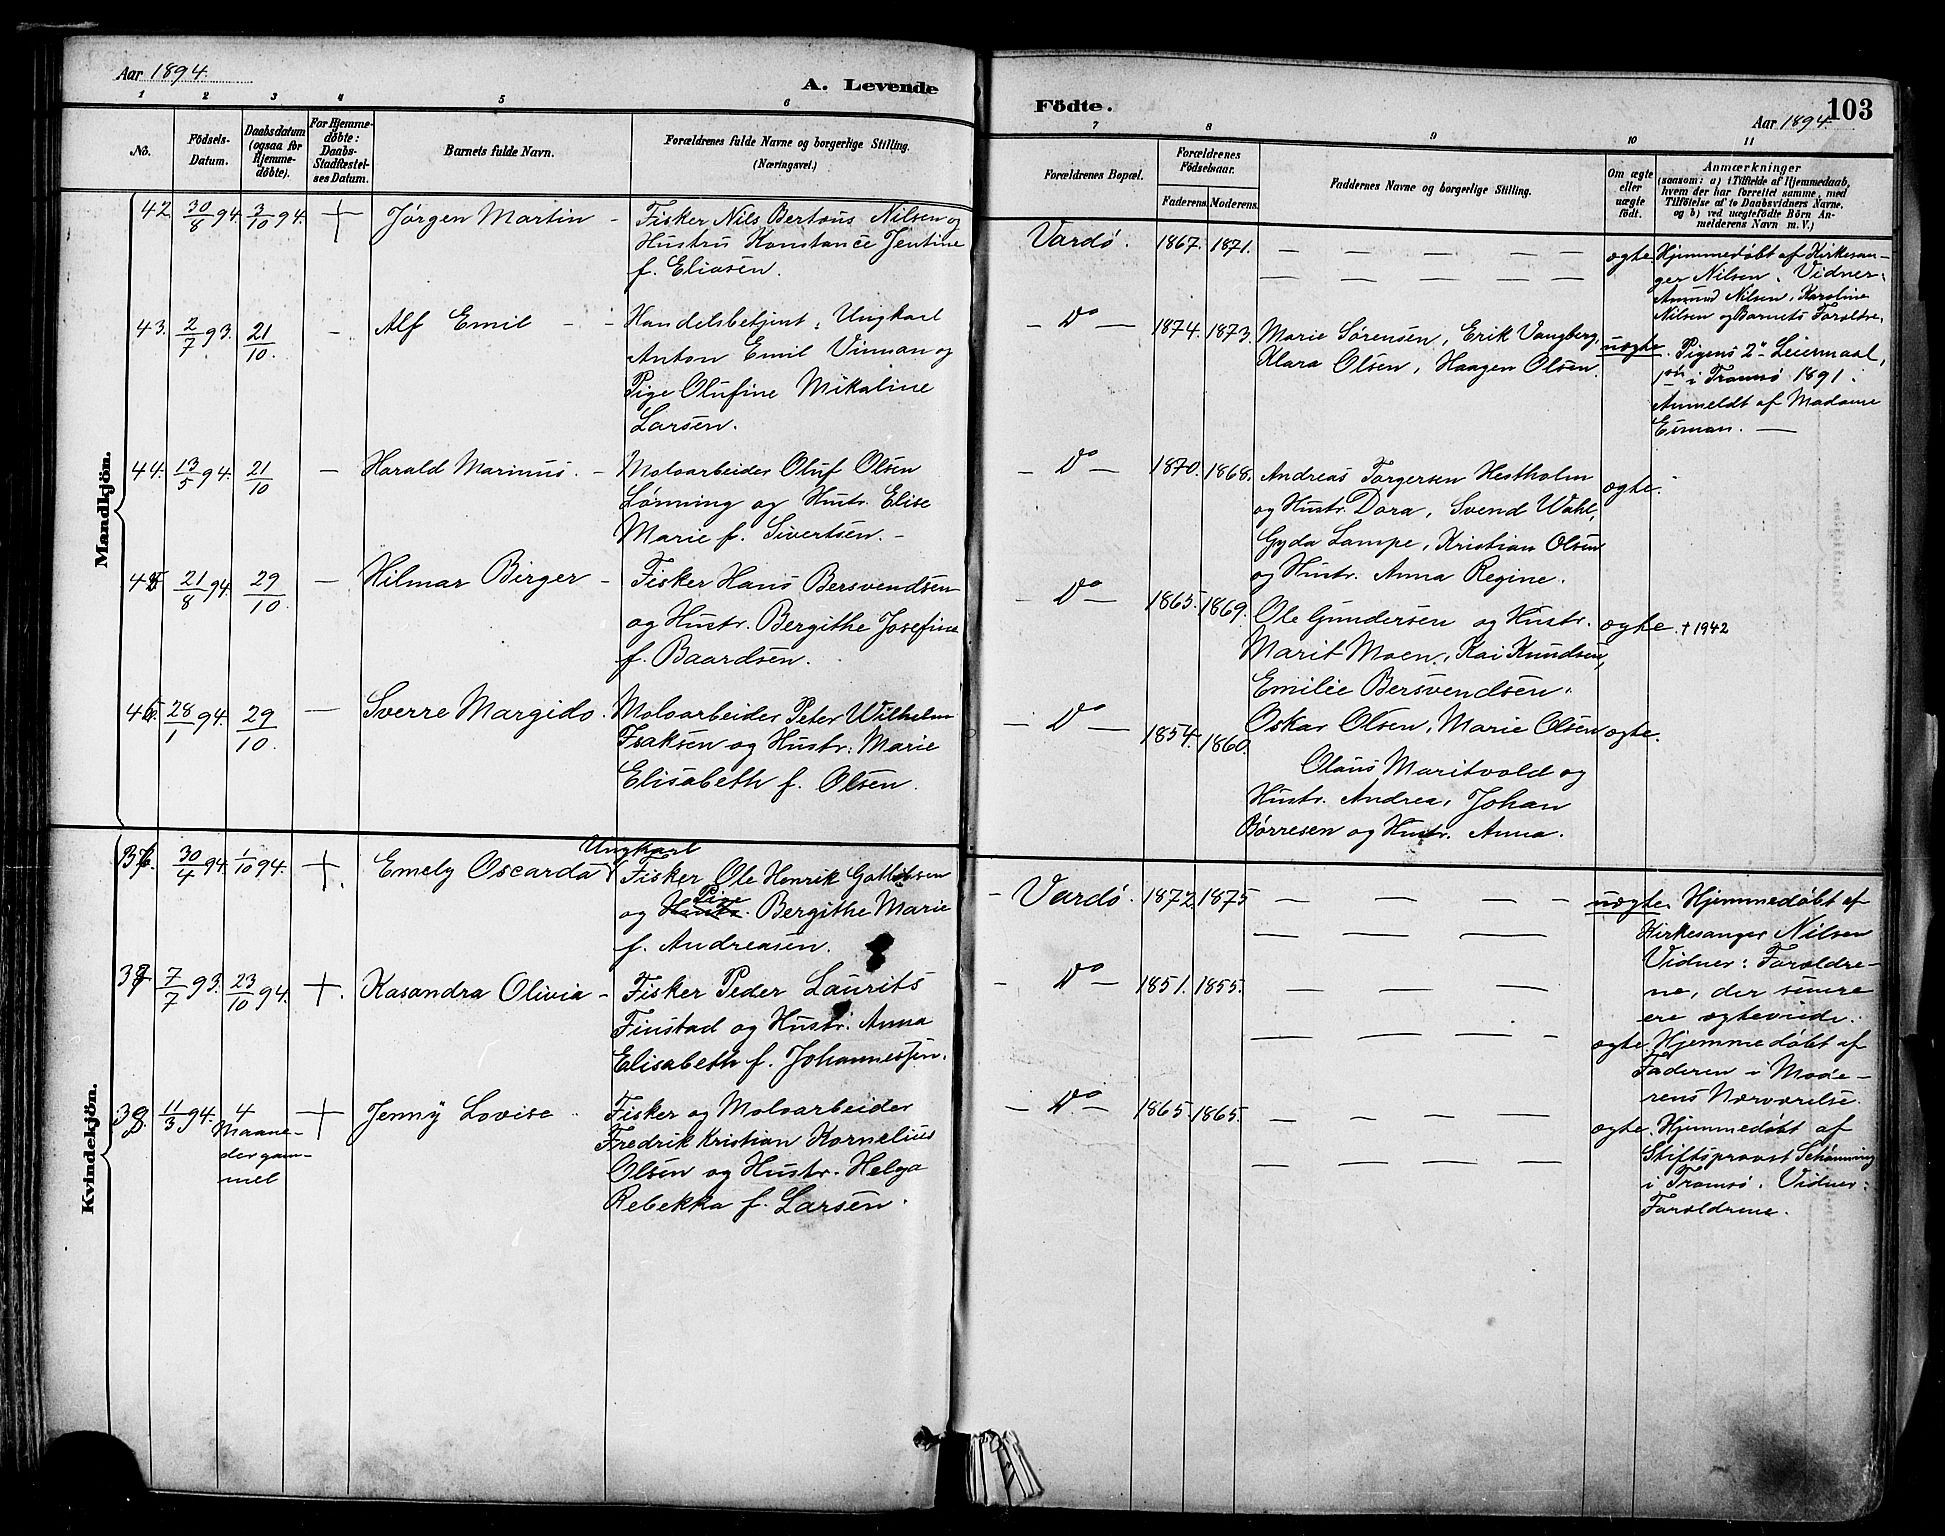 Aar 1894.
A. Levende
Födte.
103
Aar 1894.
1 2 3 4 5 6
7 8 9 10 11
Nô.
Födsels-
Datum.
Daabsdatum
(ogsaa for
Hjemme-
døbte).
For Hjemme-
døbte:
Daabs-
Stadfæstel-
ses Datum.
Barnets fulde Navn.
Forældrenes fulde Navne og borgerlige Stilling.
(Næringsvei.)
Forældrenes Bopæl.
Forældrenes
Födselsaar.
Faderens. Moderens.
Faddernes Navne og borgerlige Stilling.
Om ægte
eller
uægte
født.
Anmærkninger
(saasom: a) i Tilfælde af Hjemmedaab,
hvem der har forrettet samme, med
Tilföielse af to Daabsvidners Navne,
og b) ved uægtefödte Börn An-
melderens Navn m. V.)
Mandkjön.
42 30/8 94. 3/10 94. + Jørgen Martin –
Fisker Nils Bertæus Nilsen og
Hustru Konstance Jentine
f. Eliasen.
Vardø. 1867. 1871. – – – – ægte.
Hjemmedøbt af Kirkesan-
ger Nilsen. Vidner:
Amund Nilsen, Karoline
Nilsen og Barnets Forældre.
43. 2/7 93. 21/10. – Alf Emil – –
Handelsbetjent, Ungkarl
Anton Emil Vinman og
Pige Olufine Mikaline
Larsen.
– Do – 1874. 1873.
Marie Sørensen, Erik Vangberg,
Klara Olsen, Haagen Olsen.
uægte.
Pigens 2det Leiermaal,
1ste i Tromsø 1891.
Anmeldt af Madame
Esman. –
44. 13/5 94. 21/10 – Harald Marinus. –
Moloarbeider Oluf Olsen
Lønning og Hustr. Elise
Marie f. Sivertsen. –
– Do – 1870. 1868.
Andreas Torgersen Hestholm
og Hustr. Dora, Svend Wahl,
Gyda Lampe, Kristian Olsen
og Hustr. Anna Regine.
ægte.
45 21/8 94. 29/10. – Hilmar Birger –
Fisker Hans Bersvendsen
og Hustr. Bergithe Josefine
f. Baardsen.
– Do – 1865. 1869.
Ole Gundersen og Hustr.
Marit Moen, Kai Knudsen,
Emilie Bersvendsen.
ægte. † 1942
46. 28/1 94. 29/10. – Sverre Margido.
Moloarbeider Peter Wilhelm
Isaksen og Hustr. Marie
Elisabeth f. Olsen.
– Do – 1854. 1860.
Oskar Olsen, Marie Olsen
Olaus Maritvold og
Hustr. Andrea, Johan
Børresen og Hustr. Anna.
ægte.
Kvindekjön.
36. 30/4 94. 1/10 94. +. Emely Oscarda
Ungkarl
Fisker Ole Henrik Gottliebsen
og Hustr. Pige Bergithe Marie
f. Andreasen.
– Vardø. 1872. 1875 – – – –
uægte. Hjemmedøbt af
Kirkesanger Nilsen
Vidner: Forældre-
ne, der senere
ere ægteviede.
37 7/7 93. 23/10 94. +. Kasandra Olivia –
Fisker Peder Laurits
Finstad og Hustr. Anna
Elisabeth f. Johannessen.
– Do – 1851. 1855. – – – –
ægte. Hjemmedøbt af
Faderen i Mode-
rens Nærværelse.
38. 11/3 94. 4
Maane-
der gam-
mel
+ Jenny Lovise
Fisker og Moloarbeider
Fredrik Kristian Kornelius
Olsen og Hustr. Helga
Rebekka f. Larsen.
– Do – 1865. 1865. – – – –
ægte. Hjemmedøbt af
Stiftsprovst Schønning
i Tromsø. Vidner:
Forældrene.